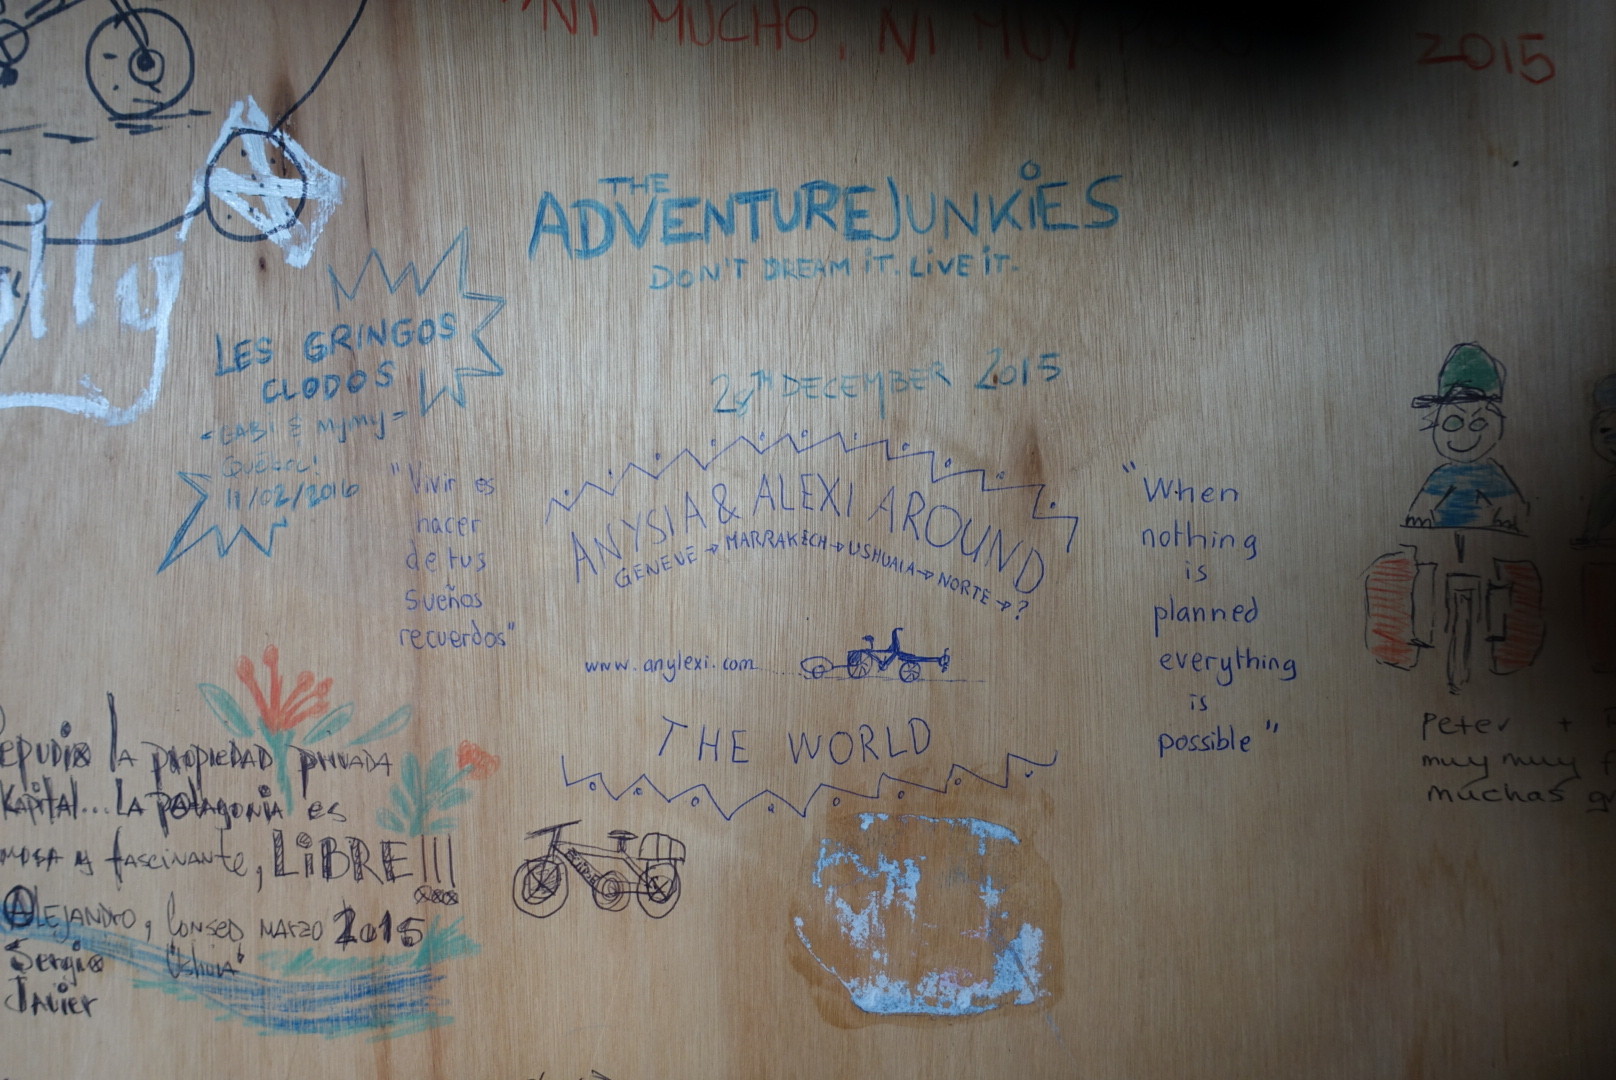 "NI MUCHO, NI MUY
2015
THE
ADVENTUREJUNKIES
DON'T DREAM iT. LiVE iT.
28TH DECEMBER 2015
lly
LES GRINGOS
CLODOS
QUÉBEC!
11/02/2016
"Vivir es
hacer
de tus
sueños
recuerdos"
ANYSIA & ALEXI AROUND
GENEVE → MARRAKECH → USHUAIA → NORTE → ?
www.anylexi.com
THE WORLD
"When
nothing
is
planned
everything
is
possible"
Peter +
muy muy
muchas
LA PROPIEDAD PRIVADA
Kapital... LA patagonia es
y fascinante, LiBRE!!!
ALEJANDRO, MARZO 2015
Sergio
Javier